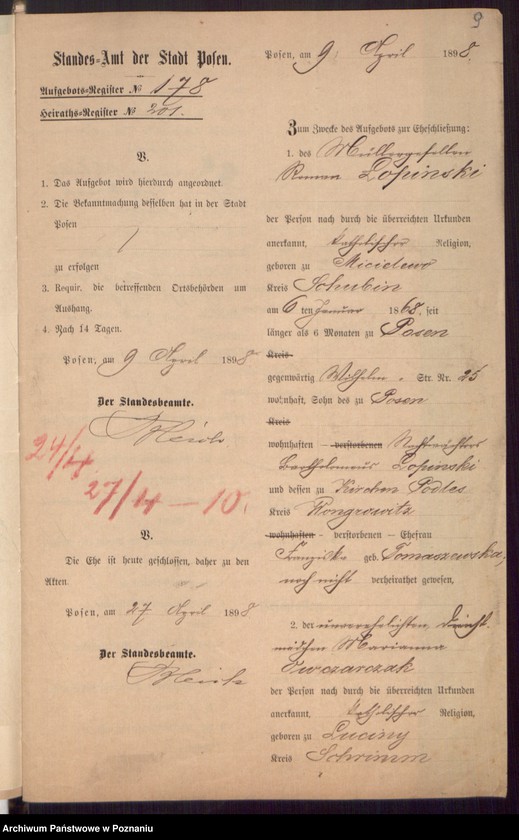 9
Standes-Amt der Stadt Posen.
Aufgebots-Register № 178
Heiraths-Register № 201.
V.
1. Das Aufgebot wird hierdurch angeordnet.
2. Die Bekanntmachung desselben hat in der Stadt
Posen
zu erfolgen
3. Requir. die betreffenden Ortsbehörden um
Aushang.
4. Nach 14 Tagen.
Posen, am 9 April 1898
Der Standesbeamte.
24/4
27/4 — 10.
V.
Die Ehe ist heute geschlossen, daher zu den
Akten.
Posen, am 27 April 1898
Der Standesbeamte.
Posen, am 9. April 1898.
Zum Zwecke des Aufgebots zur Eheschließung:
1. des Müllergesellen
Roman Lopinski
der Person nach durch die überreichten Urkunden
anerkannt, katholischer Religion,
geboren zu
Kreis Schubin
am 6 ten Januar 1868, seit
länger als 6 Monaten zu Posen
Kreis
gegenwärtig Wilhelm - Str. Nr. 25
wohnhaft, Sohn des zu Posen
Kreis
wohnhaften – verstorbenen Nachtwächters
Bartholomeus Lopinski
und dessen zu Kirchen Podles
Kreis Wongrowitz
wohnhaften – verstorbenen – Ehefrau
Franziska geb. Tomaszewska,
noch nicht verheirathet gewesen,
2. der unverehelichten, Dienst
mädchen Marianna
Owczarczak
der Person nach durch die überreichten Urkunden
anerkannt, katholischer Religion,
geboren zu Luciny
Kreis Schrimm
Archiwum Państwowe w Poznaniu